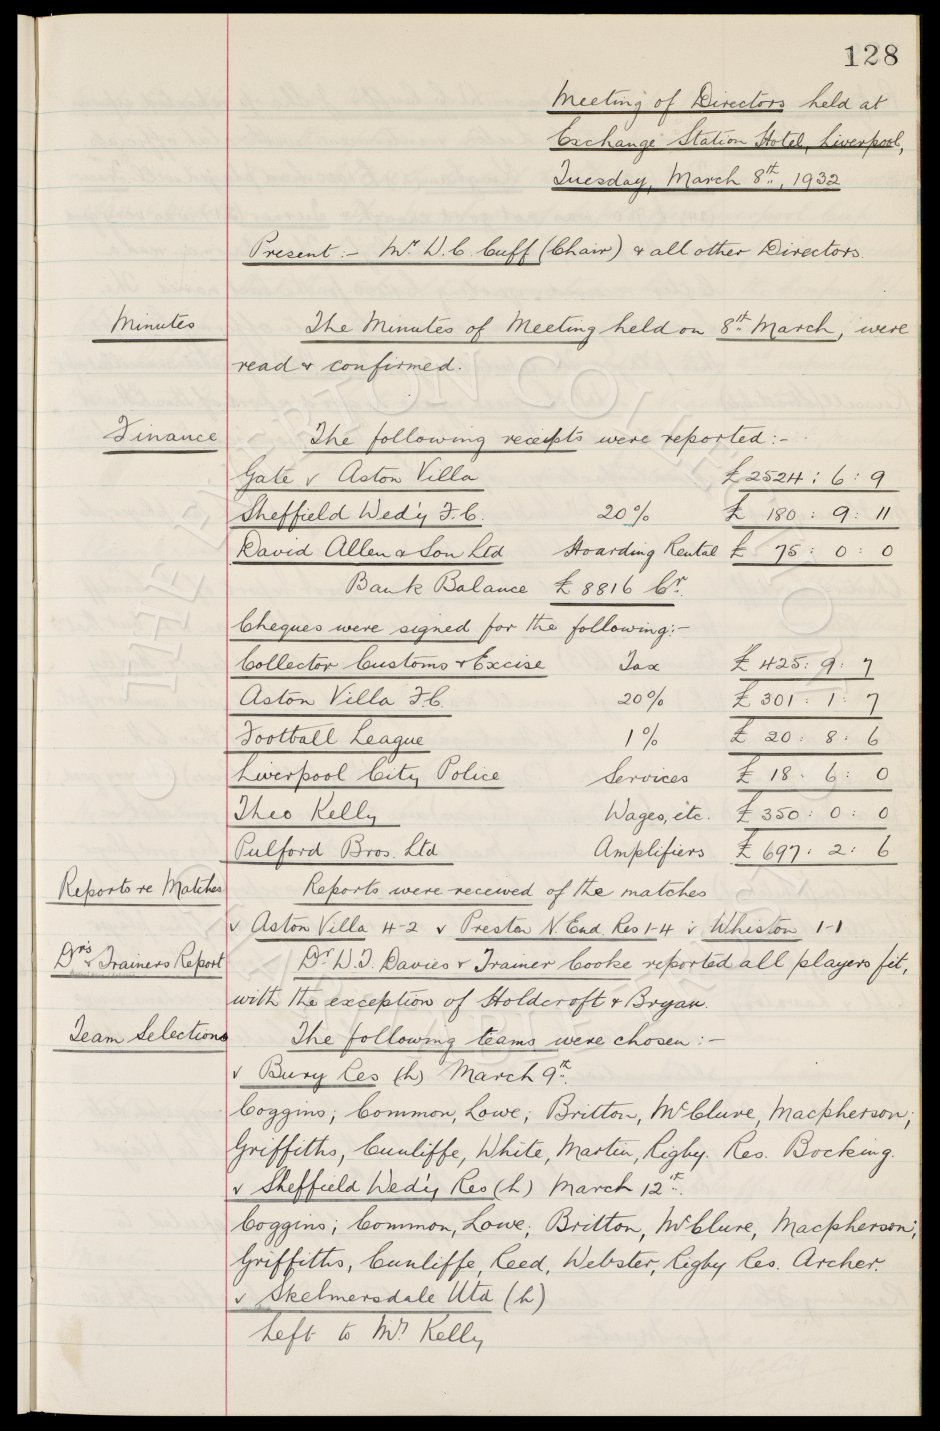 128
Meeting of Directors held at
Exchange Station Hotel, Liverpool,
Tuesday, March 8th, 1932
Present:- Mr. W.C. Cuff (Chair) & all other Directors.
Minutes The Minutes of Meeting held on 8th March, were
read & confirmed.
Finance The following receipts were reported:-
Gate v Aston Villa £2524 : 6 : 9
Sheffield Wed'y F.C. 20% £ 180 : 9 : 11
David Allen & Son Ltd Hoarding Rental £ 75 : 0 : 0
Bank Balance £8816 Cr.
Cheques were signed for the following:-
Collector Customs & Excise Tax £ 425 : 9 : 7
Aston Villa F.C. 20% £ 301 : 1 : 7
Football League 1% £ 20 : 8 : 6
Liverpool City Police Services £ 18 : 6 : 0
Theo Kelly Wages, etc. £ 350 : 0 : 0
Pulford Bros. Ltd Amplifiers £ 697 : 2 : 6
Reports re Matches Reports were received of the matches
v Aston Villa 4-2 v Preston N. End Res 1-4 v Whiston 1-1
Dr's & Trainers Report Dr. W.J. Davies & Trainer Cooke reported all players fit,
with the exception of Holdcroft & Bryan.
Team Selections The following teams were chosen:-
v Bury Res (h) March 9th.
Coggins; Common, Lowe; Britton, McClure, Macpherson;
Griffiths, Cunliffe, White, Martin, Rigby. Res. Bocking.
v Sheffield Wed'y Res (h) March 12th.
Coggins; Common, Lowe; Britton, McClure, Macpherson;
Griffiths, Cunliffe, Reed, Webster, Rigby Res. Archer.
v Skelmersdale Utd (h)
Left to Mr Kelly